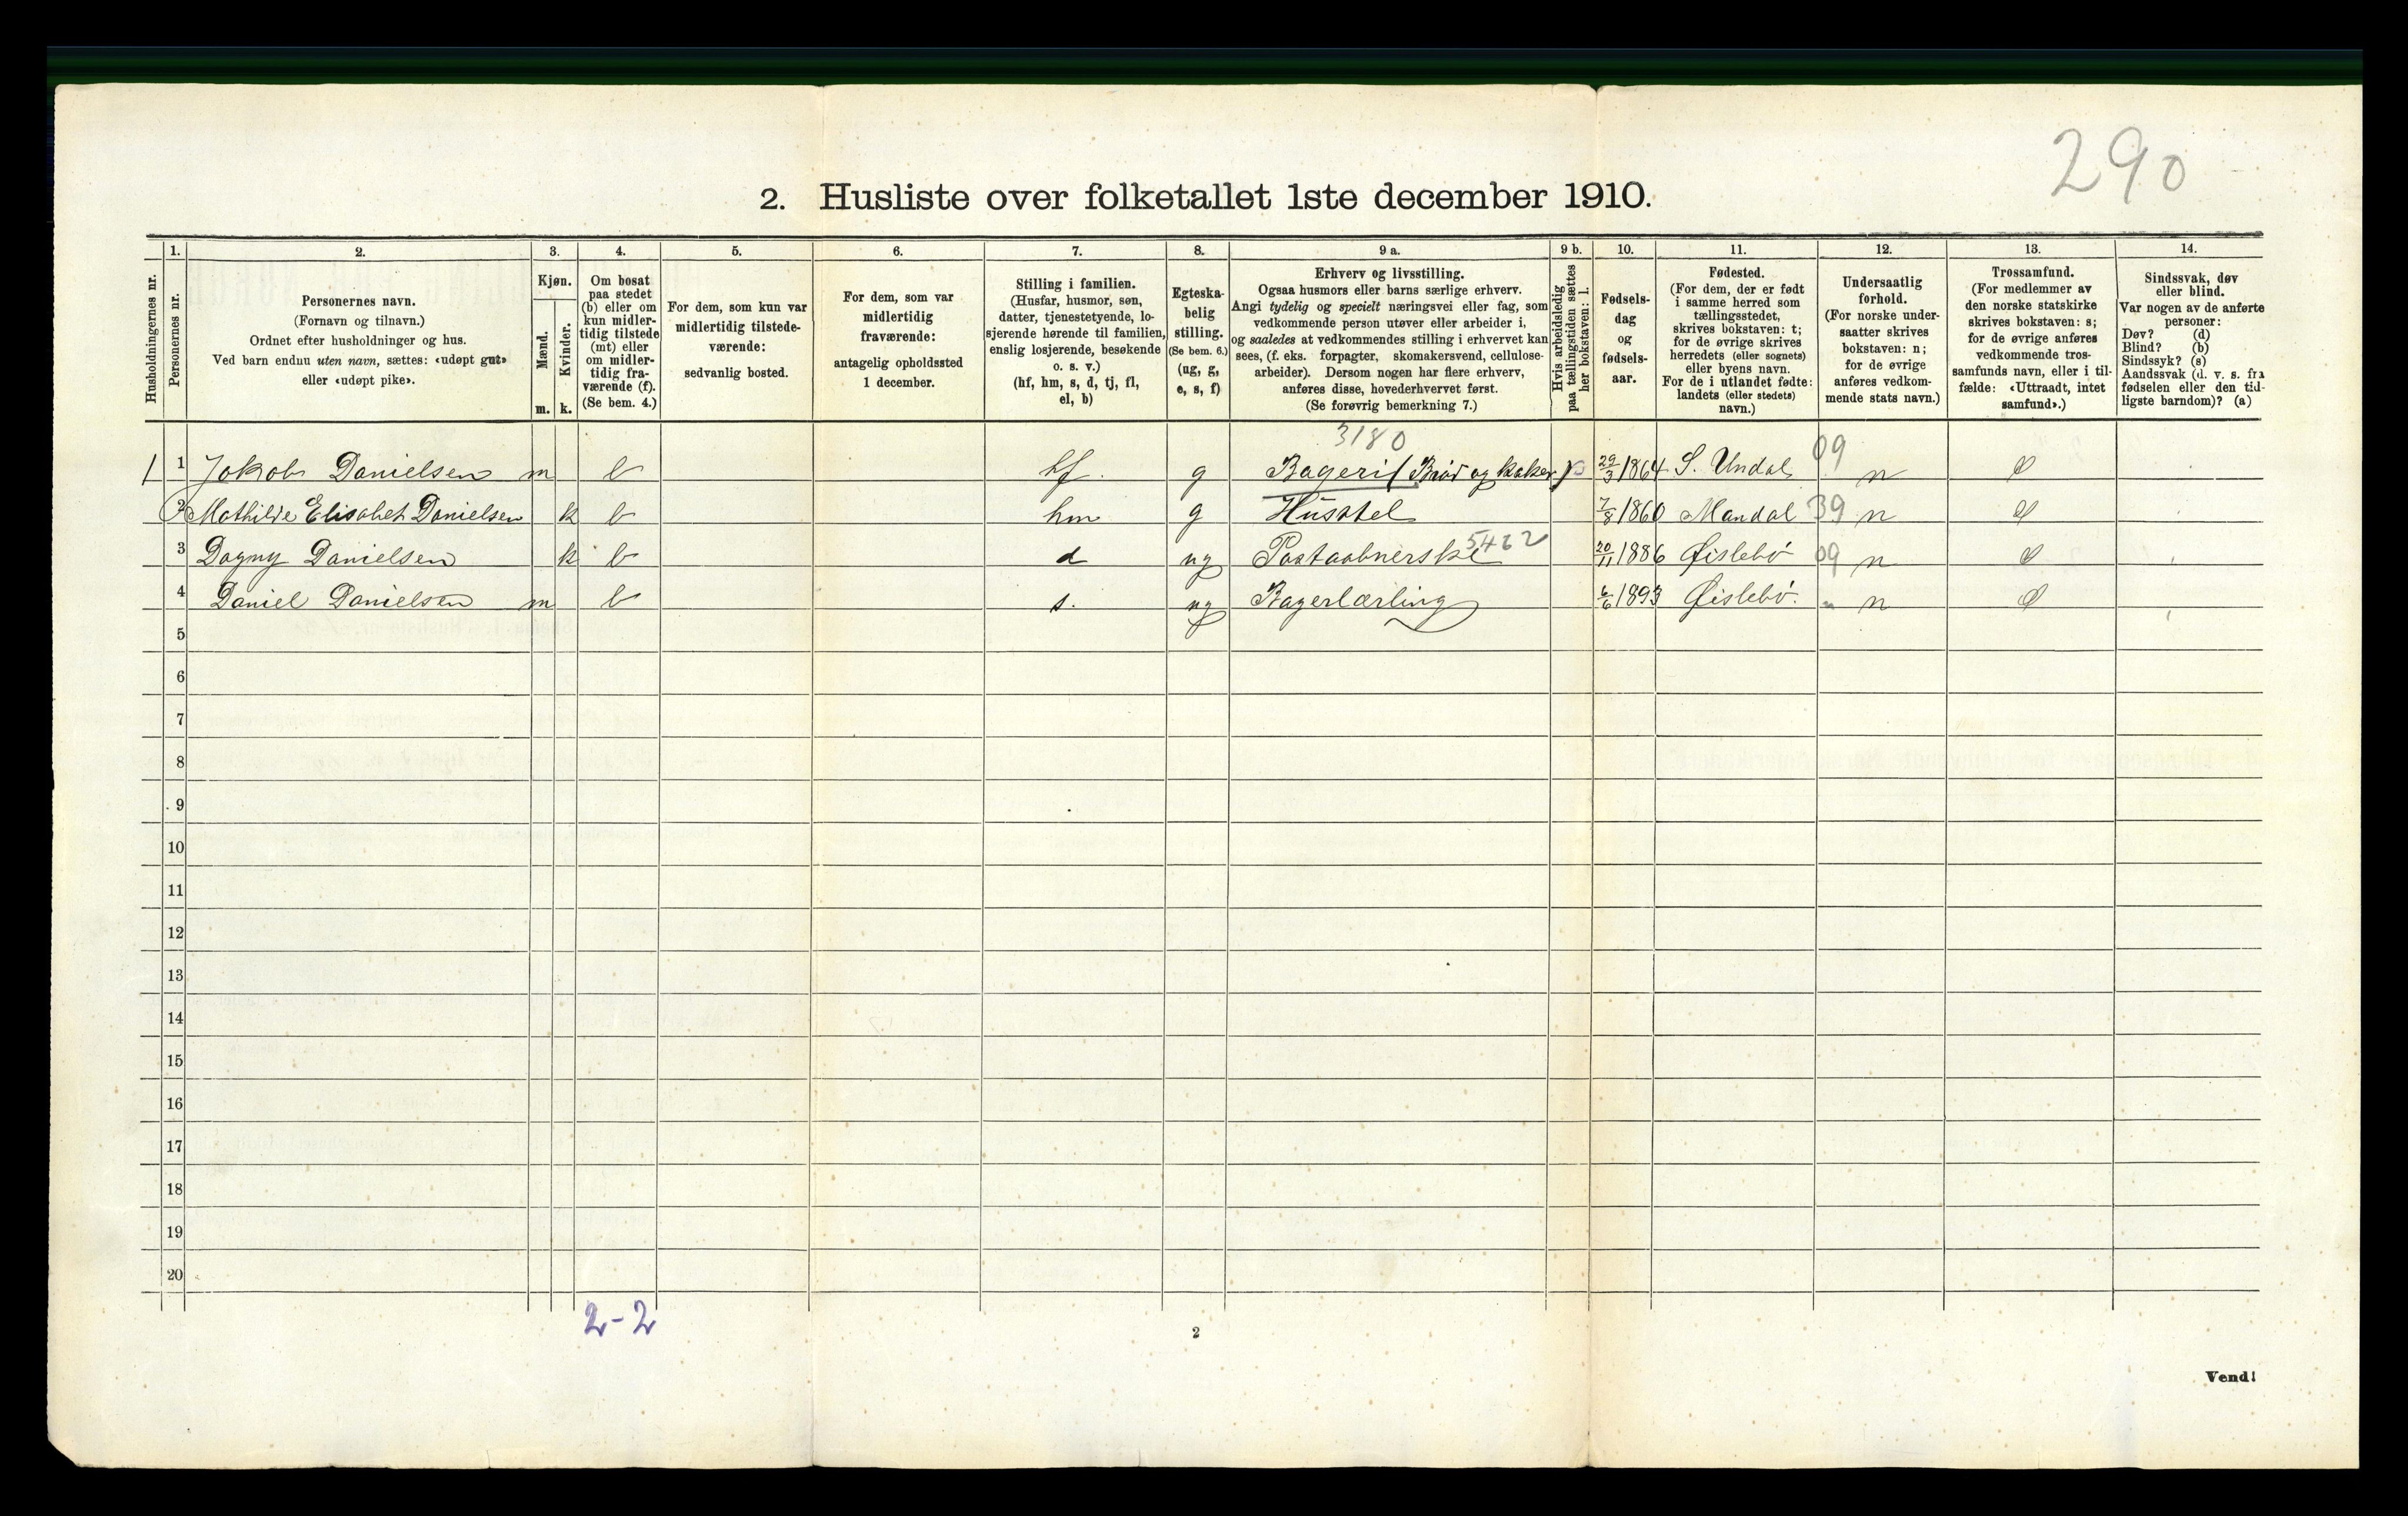 290
2. Husliste over folketallet 1ste december 1910.
Husholdningernes nr.
1.
Personernes nr.
2.
Personernes navn.
(Fornavn og tilnavn.)
Ordnet efter husholdninger og hus.
Ved barn endnu uten navn, sættes: «udøpt gut»
eller «udøpt pike».
3.
Kjøn.
Mænd.
Kvinder.
m. k.
4.
Om bosat
paa stedet
(b) eller om
kun midler-
tidig tilstede
(mt) eller
om midler-
tidig fra-
værende (f).
(Se bem. 4.)
5.
For dem, som kun var
midlertidig tilstede-
værende:
sedvanlig bosted.
6.
For dem, som var
midlertidig
fraværende:
antagelig opholdssted
1 december.
7.
Stilling i familien.
(Husfar, husmor, søn,
datter, tjenestetyende, lo-
sjerende hørende til familien,
enslig losjerende, besøkende
o. s. v.)
(hf, hm, s, d, tj, fl,
el, b)
8.
Egteska-
belig
stilling.
(Se bem. 6.)
(ug, g,
e, s, f)
9 a.
Erhverv og livsstilling.
Ogsaa husmors eller barns særlige erhverv.
Angi tydelig og specielt næringsvei eller fag, som
vedkommende person utøver eller arbeider i,
og saaledes at vedkommendes stilling i erhvervet kan
sees, (f. eks. forpagter, skomakersvend, cellulose-
arbeider). Dersom nogen har flere erhverv,
anføres disse, hovederhvervet først.
(Se forøvrig bemerkning 7.)
9 b.
Hvis arbeidsledig
paa tællingstiden sættes
her bokstaven: l.
10.
Fødsels-
dag
og
fødsels-
aar.
11.
Fødested.
(For dem, der er født
i samme herred som
tællingsstedet,
skrives bokstaven: t;
for de øvrige skrives
herredets (eller sognets)
eller byens navn.
For de i utlandet fødte:
landets (eller stedets)
navn.)
12.
Undersaatlig
forhold.
(For norske under-
saatter skrives
bokstaven: n;
for de øvrige
anføres vedkom-
mende stats navn.)
13.
Trossamfund.
(For medlemmer av
den norske statskirke
skrives bokstaven: s;
for de øvrige anføres
vedkommende tros-
samfunds navn, eller i til-
fælde: «Uttraadt, intet
samfund».)
14.
Sindssvak, døv
eller blind.
Var nogen av de anførte
personer:
Døv? (d)
Blind? (b)
Sindssyk? (s)
Aandssvak (d. v. s. fra
fødselen eller den tid-
ligste barndom)? (a)
3180 09
1 1 Jakob Danielsen m b hf. g Bageri (Brød og kaker) 29/3 1864 S. Undal n
2 Mathilde Elisabet Danielsen k b hm g Husstel 7/8 1860 Mandal 39 n
5462
3 Dagny Danielsen k b d ug Postaabnerske 20/11 1886 Øislebö 09 n
4 Daniel Danielsen m b s. ug Bagerlærling 6/6 1893 Øislebö. " n
5
6
7
8
9
10
11
12
13
14
15
16
17
18
19
20
2-2
2
Vend!